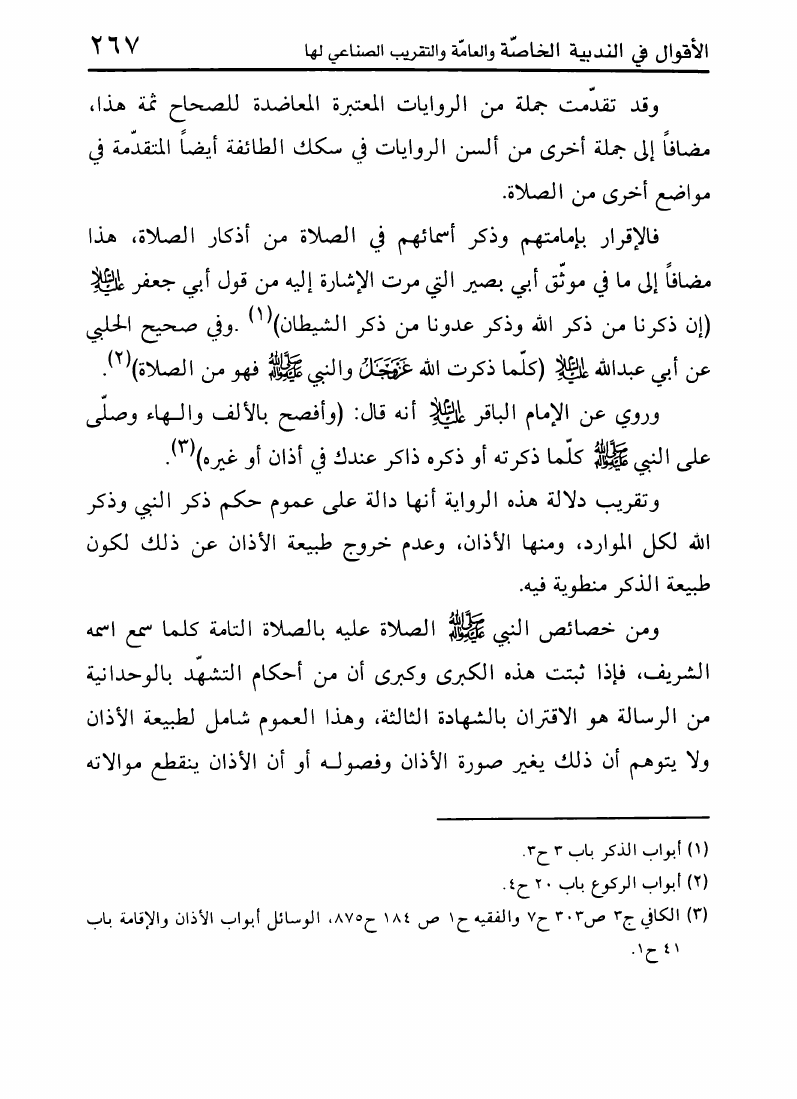 الأقوال في الندبية الخاصّة والعامّة والتقريب الصناعي لها ٢٦٧
وقد تقدّمت جملة من الروايات المعتبرة المعاضدة للصحاح ثمة هذا،
مضافاً إلى جملة أخرى من ألسن الروايات في سكك الطائفة أيضاً المتقدّمة في
مواضع أخرى من الصلاة.
فالإقرار بإمامتهم وذكر أسمائهم في الصلاة من أذكار الصلاة، هذا
مضافاً إلى ما في موثّق أبي بصير التي مرت الإشارة إليه من قول أبي جعفر عليه السلام
(إن ذكرنا من ذكر الله وذكر عدونا من ذكر الشيطان)(١) .وفي صحيح الحلبي
عن أبي عبدالله عليه السلام (كلّما ذكرت الله عزوجل والنبي ﷺ فهو من الصلاة)(٢).
وروي عن الإمام الباقر عليه السلام أنه قال: (وأفصح بالألف والهاء وصلّى
على النبي ﷺ كلّما ذكرته أو ذكره ذاكر عندك في أذان أو غيره)(٣).
وتقريب دلالة هذه الرواية أنها دالة على عموم حكم ذكر النبي وذكر
الله لكل الموارد، ومنها الأذان، وعدم خروج طبيعة الأذان عن ذلك لكون
طبيعة الذكر منطوية فيه.
ومن خصائص النبي ﷺ الصلاة عليه بالصلاة التامة كلما سمع اسمه
الشريف، فإذا ثبتت هذه الكبرى وكبرى أن من أحكام التشهّد بالوحدانية
من الرسالة هو الاقتران بالشهادة الثالثة، وهذا العموم شامل لطبيعة الأذان
ولا يتوهم أن ذلك يغير صورة الأذان وفصوله أو أن الأذان ينقطع موالاته
(١) أبواب الذكر باب ٣ ح٣.
(٢) أبواب الركوع باب ٢٠ ح٤.
(٣) الكافي ج٣ ص٣٠٣ ح٧ والفقيه ح١ ص ١٨٤ ح٨٧٥، الوسائل أبواب الأذان والإقامة باب
٤١ ح١.